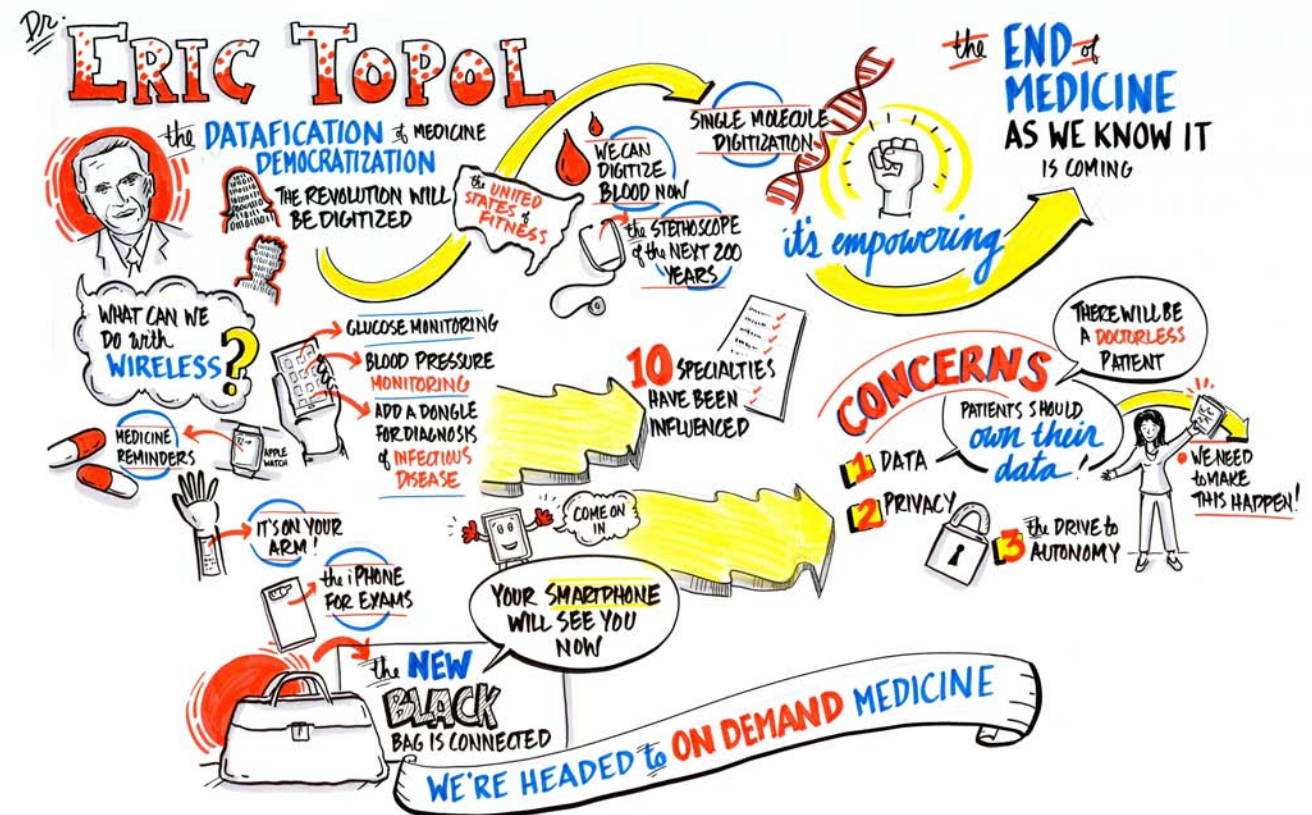 Dr.
ERIC TOPOL
the DATAFICATION of MEDICINE
DEMOCRATIZATION
THE REVOLUTION WILL
BE DIGITIZED
the UNITED
STATES of
FITNESS
WE CAN
DIGITIZE
BLOOD NOW
the STETHOSCOPE
of the NEXT 200
YEARS
SINGLE MOLECULE
DIGITIZATION
it's empowering
the END of
MEDICINE
AS WE KNOW IT
IS COMING
WHAT CAN WE
DO with
WIRELESS?
GLUCOSE MONITORING
BLOOD PRESSURE
MONITORING
ADD A DONGLE
FOR DIAGNOSIS
of INFECTIOUS
DISEASE
MEDICINE
REMINDERS
APPLE
WATCH
IT'S ON YOUR
ARM!
the iPHONE
FOR EXAMS
10 SPECIALTIES
HAVE BEEN
INFLUENCED
COME ON
IN
YOUR SMARTPHONE
WILL SEE YOU
NOW
the NEW
BLACK
BAG IS CONNECTED
WE'RE HEADED to ON DEMAND MEDICINE
CONCERNS
1 DATA
2 PRIVACY
3 the DRIVE to
AUTONOMY
PATIENTS SHOULD
own their
data!
THERE WILL BE
A DOCTORLESS
PATIENT
WE NEED
to MAKE
THIS HAPPEN!